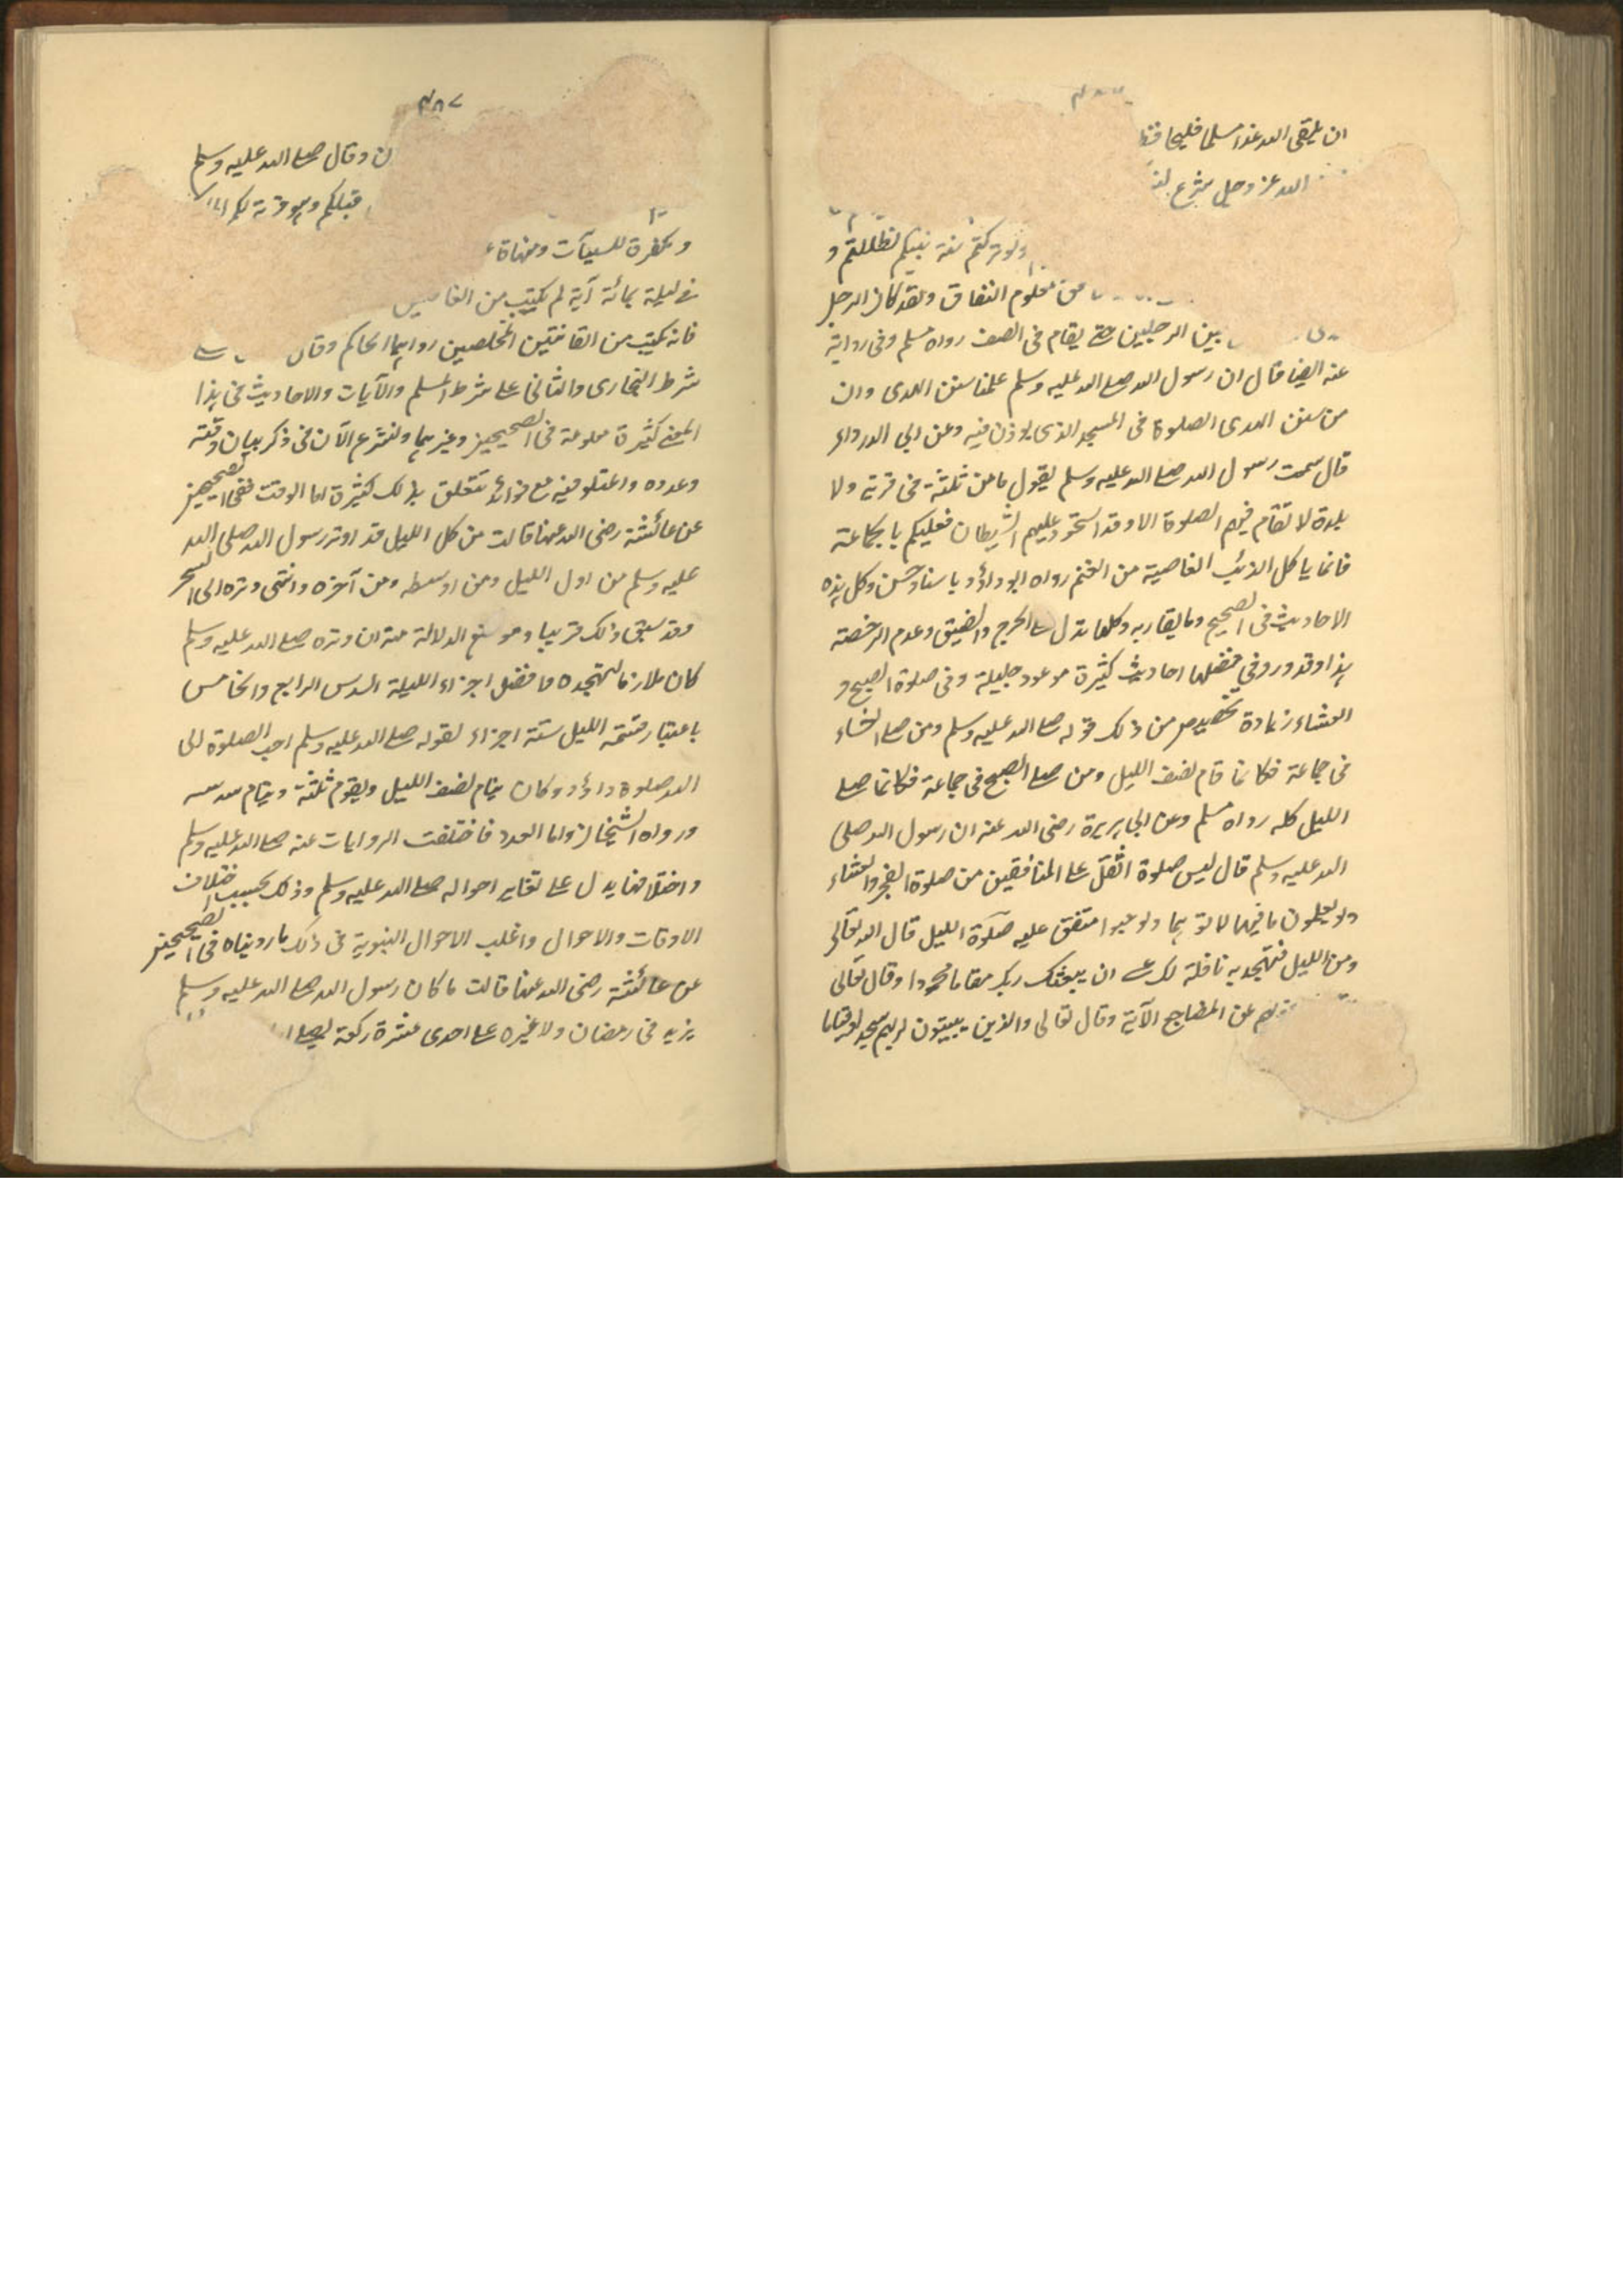 ان يلقى الله غدا مسلما فليحافظ
الله عز وجل شرع
ولو تركتم سنة نبيكم لظللتم و
معلوم النفاق ولقد كان الرجل
بين الرجلين حتى يقام فى الصف رواه مسلم وفى رواية
عنه ايضا قال ان رسول الله صلى الله عليه وسلم علمنا سنن الهدى وان
من سنن الهدى الصلوة فى المسجد الذى يوذن فيه وعن ابى الدرداء
قال سمعت رسول الله صلى الله عليه وسلم يقول ما من ثلثة فى قرية ولا
بلدة لا تقام فيهم الصلوة الا وقد استحوذ عليهم الشيطان فعليكم بالجماعة
فانما ياكل الذئب القاصية من الغنم رواه ابو داؤد باسناد حسن وكل هذه
الاحاديث فى الصحيح وما يقاربه وكلها تدل على الحرج والضيق وعدم الرخصة
هذا وقد ورد في فضلها احاديث كثيرة موعود جليلة وفى صلوة الصبح و
العشاء زيادة تخصيص من ذلك قوله صلى الله عليه وسلم ومن صلى العشاء
فى جماعة فكانما قام نصف الليل ومن صلى الصبح فى جماعة فكانما صلى
الليل كله رواه مسلم وعن ابى هريرة رضى الله عنه ان رسول الله صلى
الله عليه وسلم قال ليس صلوة اثقل على المنافقين من صلوة الفجر والعشاء
ولو يعلمون ما فيهما لاتوهما ولو حبوا متفق عليه صلوة الليل قال الله تعالى
ومن الليل فتهجد به نافلة لك عسى ان يبعثك ربك مقاما محمودا وقال تعالى
عن المضاجع الآية وقال تعالى والذين يبيتون لربهم سجدا وقياما
٤٨٧
ن وقال صلى الله عليه وسلم
قبلكم وهو قربة لكم
ومكفرة للسيآت ومنهاة
فى ليلة بمائة آية لم يكتب من الغافلين
فانه يكتب من القانتين المخلصين رواهما الحاكم وقال على
شرط البخارى والثانى على شرط مسلم والآيات والاحاديث فى هذا
المعنى كثيرة معلومة فى الصحيحين وغيرهما ولنشرع الآن فى ذكر بيان وقته
وعدده مع فوائد تتعلق بذلك كثيرة اما الوقت ففى الصحيحين
عن عائشة رضى الله عنها قالت من كل الليل قد اوتر رسول الله صلى الله
عليه وسلم من اول الليل ومن اوسطه ومن آخره وانتهى وتره الى السحر
وقد سبق ذلك قريبا وموضع الدلالة منه ان وتره صلى الله عليه وسلم
كان ملازما لتهجده وافضل اجزاء الليلة السدس الرابع والخامس
باعتبار قسمة الليل ستة اجزاء لقوله صلى الله عليه وسلم احب الصلوة الى
الله صلوة داؤد وكان ينام نصف الليل ويقوم ثلثه وينام سدسه
ورواه الشيخان واما العدد فاختلفت الروايات عنه صلى الله عليه وسلم
واختلافها يدل على تغاير احواله صلى الله عليه وسلم وذلك بحسب اختلاف
الاوقات والاحوال واغلب الاحوال النبوية فى ذلك ما رويناه فى الصحيحين
عن عائشة رضى الله عنها قالت ما كان رسول الله صلى الله عليه وسلم
يزيد فى رمضان ولا غيره على احدى عشرة ركعة يصلى